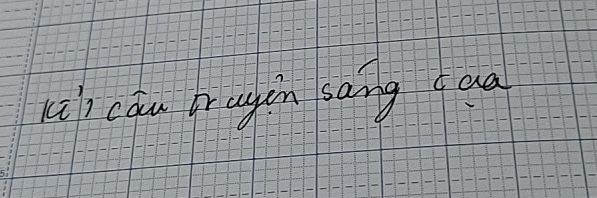 kể câu truyện sang của